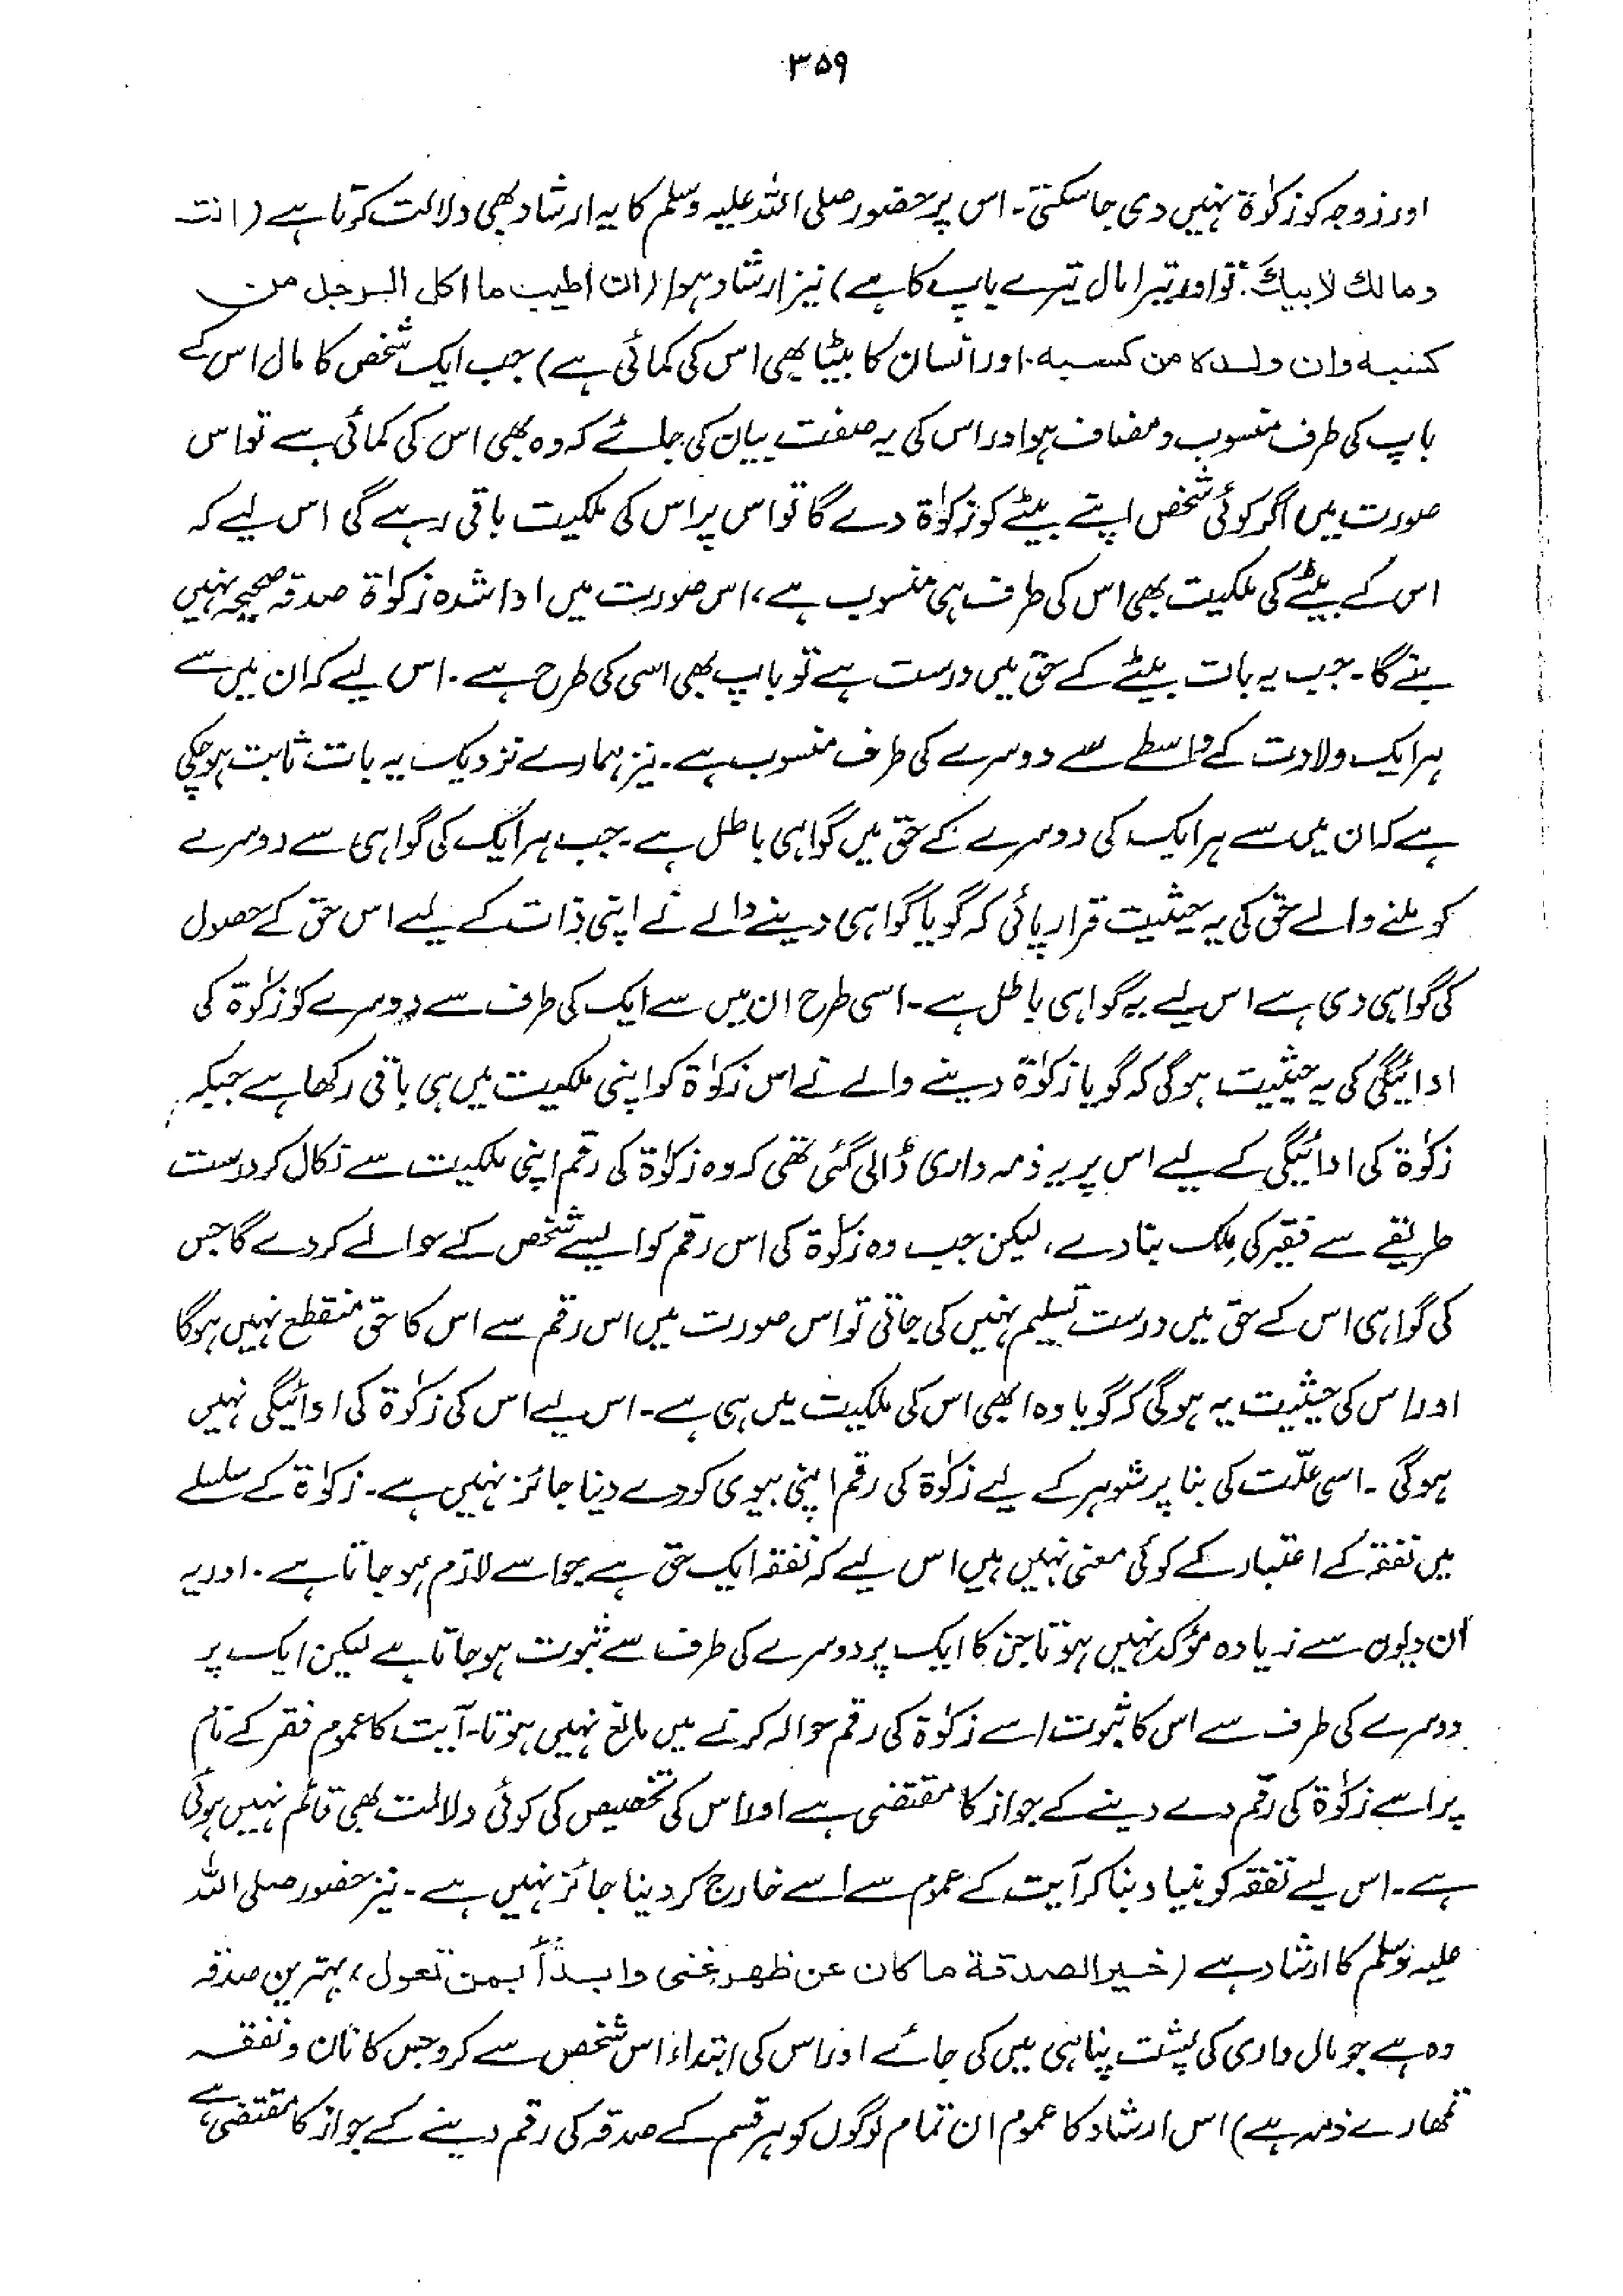 ۳۵۹
اور زوجہ کو زکوٰۃ نہیں دی جا سکتی۔ اس پر حضور صلی اللہ علیہ وسلم کا یہ ارشاد بھی دلالت کرتا ہے (انت
ومالك لابيكَ: تو اور تیرا مال تیرے باپ کا ہے) نیز ارشاد ہوا (ان اطیب ما اکل الرجل من
کسبه وان ولده من کسبه۔ اور انسان کا بیٹا بھی اس کی کمائی ہے) جب ایک شخص کا مال اس کے
باپ کی طرف منسوب و مضاف ہوا اور اس کی یہ صفت بیان کی جائے کہ وہ بھی اس کی کمائی ہے تو اس
صورت میں اگر کوئی شخص اپنے بیٹے کو زکوٰۃ دے گا تو اس پر اس کی ملکیت باقی رہے گی اس لیے کہ
اس کے بیٹے کی ملکیت بھی اس کی طرف ہی منسوب ہے، اس صورت میں ادا شدہ زکوٰۃ صدقہ صحیحہ نہیں
بنے گا۔ جب یہ بات بیٹے کے حق میں درست ہے تو باپ بھی اسی کی طرح ہے۔ اس لیے کہ ان میں سے
ہر ایک ولادت کے واسطے سے دوسرے کی طرف منسوب ہے۔ نیز ہمارے نزدیک یہ بات ثابت ہو چکی
ہے کہ ان میں سے ہر ایک کی دوسرے کے حق میں گواہی باطل ہے۔ جب ہر ایک کی گواہی سے دوسرے
کو ملنے والے حق کی یہ حیثیت قرار پائی کہ گویا گواہی دینے والے نے اپنی ذات کے لیے اس حق کے حصول
کی گواہی دی ہے اس لیے یہ گواہی باطل ہے۔ اسی طرح ان میں سے ایک کی طرف سے دوسرے کو زکوٰۃ کی
ادائیگی کی یہ حیثیت ہو گی کہ گویا زکوٰۃ دینے والے نے اس زکوٰۃ کو اپنی ملکیت میں ہی باقی رکھا ہے جبکہ
زکوٰۃ کی ادائیگی کے لیے اس پر یہ ذمہ داری ڈالی گئی تھی کہ وہ زکوٰۃ کی رقم اپنی ملکیت سے نکال کر درست
طریقے سے فقیر کی مِلک بنا دے، لیکن جب وہ زکوٰۃ کی اس رقم کو ایسے شخص کے حوالے کر دے گا جس
کی گواہی اس کے حق میں درست تسلیم نہیں کی جاتی تو اس صورت میں اس رقم سے اس کا حق منقطع نہیں ہوگا
اور اس کی حیثیت یہ ہو گی کہ گویا وہ ابھی اس کی ملکیت میں ہی ہے۔ اس لیے اس کی زکوٰۃ کی ادائیگی نہیں
ہو گی۔ اسی علّت کی بنا پر شوہر کے لیے زکوٰۃ کی رقم اپنی بیوی کو دے دینا جائز نہیں ہے۔ زکوٰۃ کے سلسلے
میں نفقہ کے اعتبار کے کوئی معنی نہیں ہیں اس لیے کہ نفقہ ایک حق ہے جو اسے لازم ہو جاتا ہے۔ اور یہ
اُن دیون سے زیادہ مؤکد نہیں ہوتا جن کا ایک پر دوسرے کی طرف سے ثبوت ہو جاتا ہے لیکن ایک پر
دوسرے کی طرف سے اس کا ثبوت اسے زکوٰۃ کی رقم حوالہ کرنے میں مانع نہیں ہوتا۔ آیت کا عموم فقر کے نام
پر اسے زکوٰۃ کی رقم دے دینے کے جواز کا مقتضی ہے اور اس کی تخصیص کی کوئی دلالت بھی قائم نہیں ہوئی
ہے۔ اس لیے نفقہ کو بنیاد بنا کر آیت کے عموم سے اسے خارج کر دینا جائز نہیں ہے۔ نیز حضور صلی اللہ
علیہ وسلم کا ارشاد ہے (خیر الصدقة ما کان عن ظهر غنی وابدأ بمن تعول، بہترین صدقہ
وہ ہے جو مال داری کی پشت پناہی میں کی جائے اور اس کی ابتداء اس شخص سے کرو جس کا نان و نفقہ
تمھارے ذمہ ہے) اس ارشاد کا عموم ان تمام لوگوں کو ہر قسم کے صدقہ کی رقم دینے کے جواز کا مقتضی ہے،